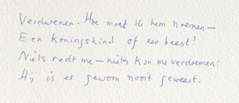 Verdwenen. Hoe moet ik hem noemen —
Een koningskind of een beest?
Niets redt me — niets kan me verdoemen:
Hij is er gewoon nooit geweest.